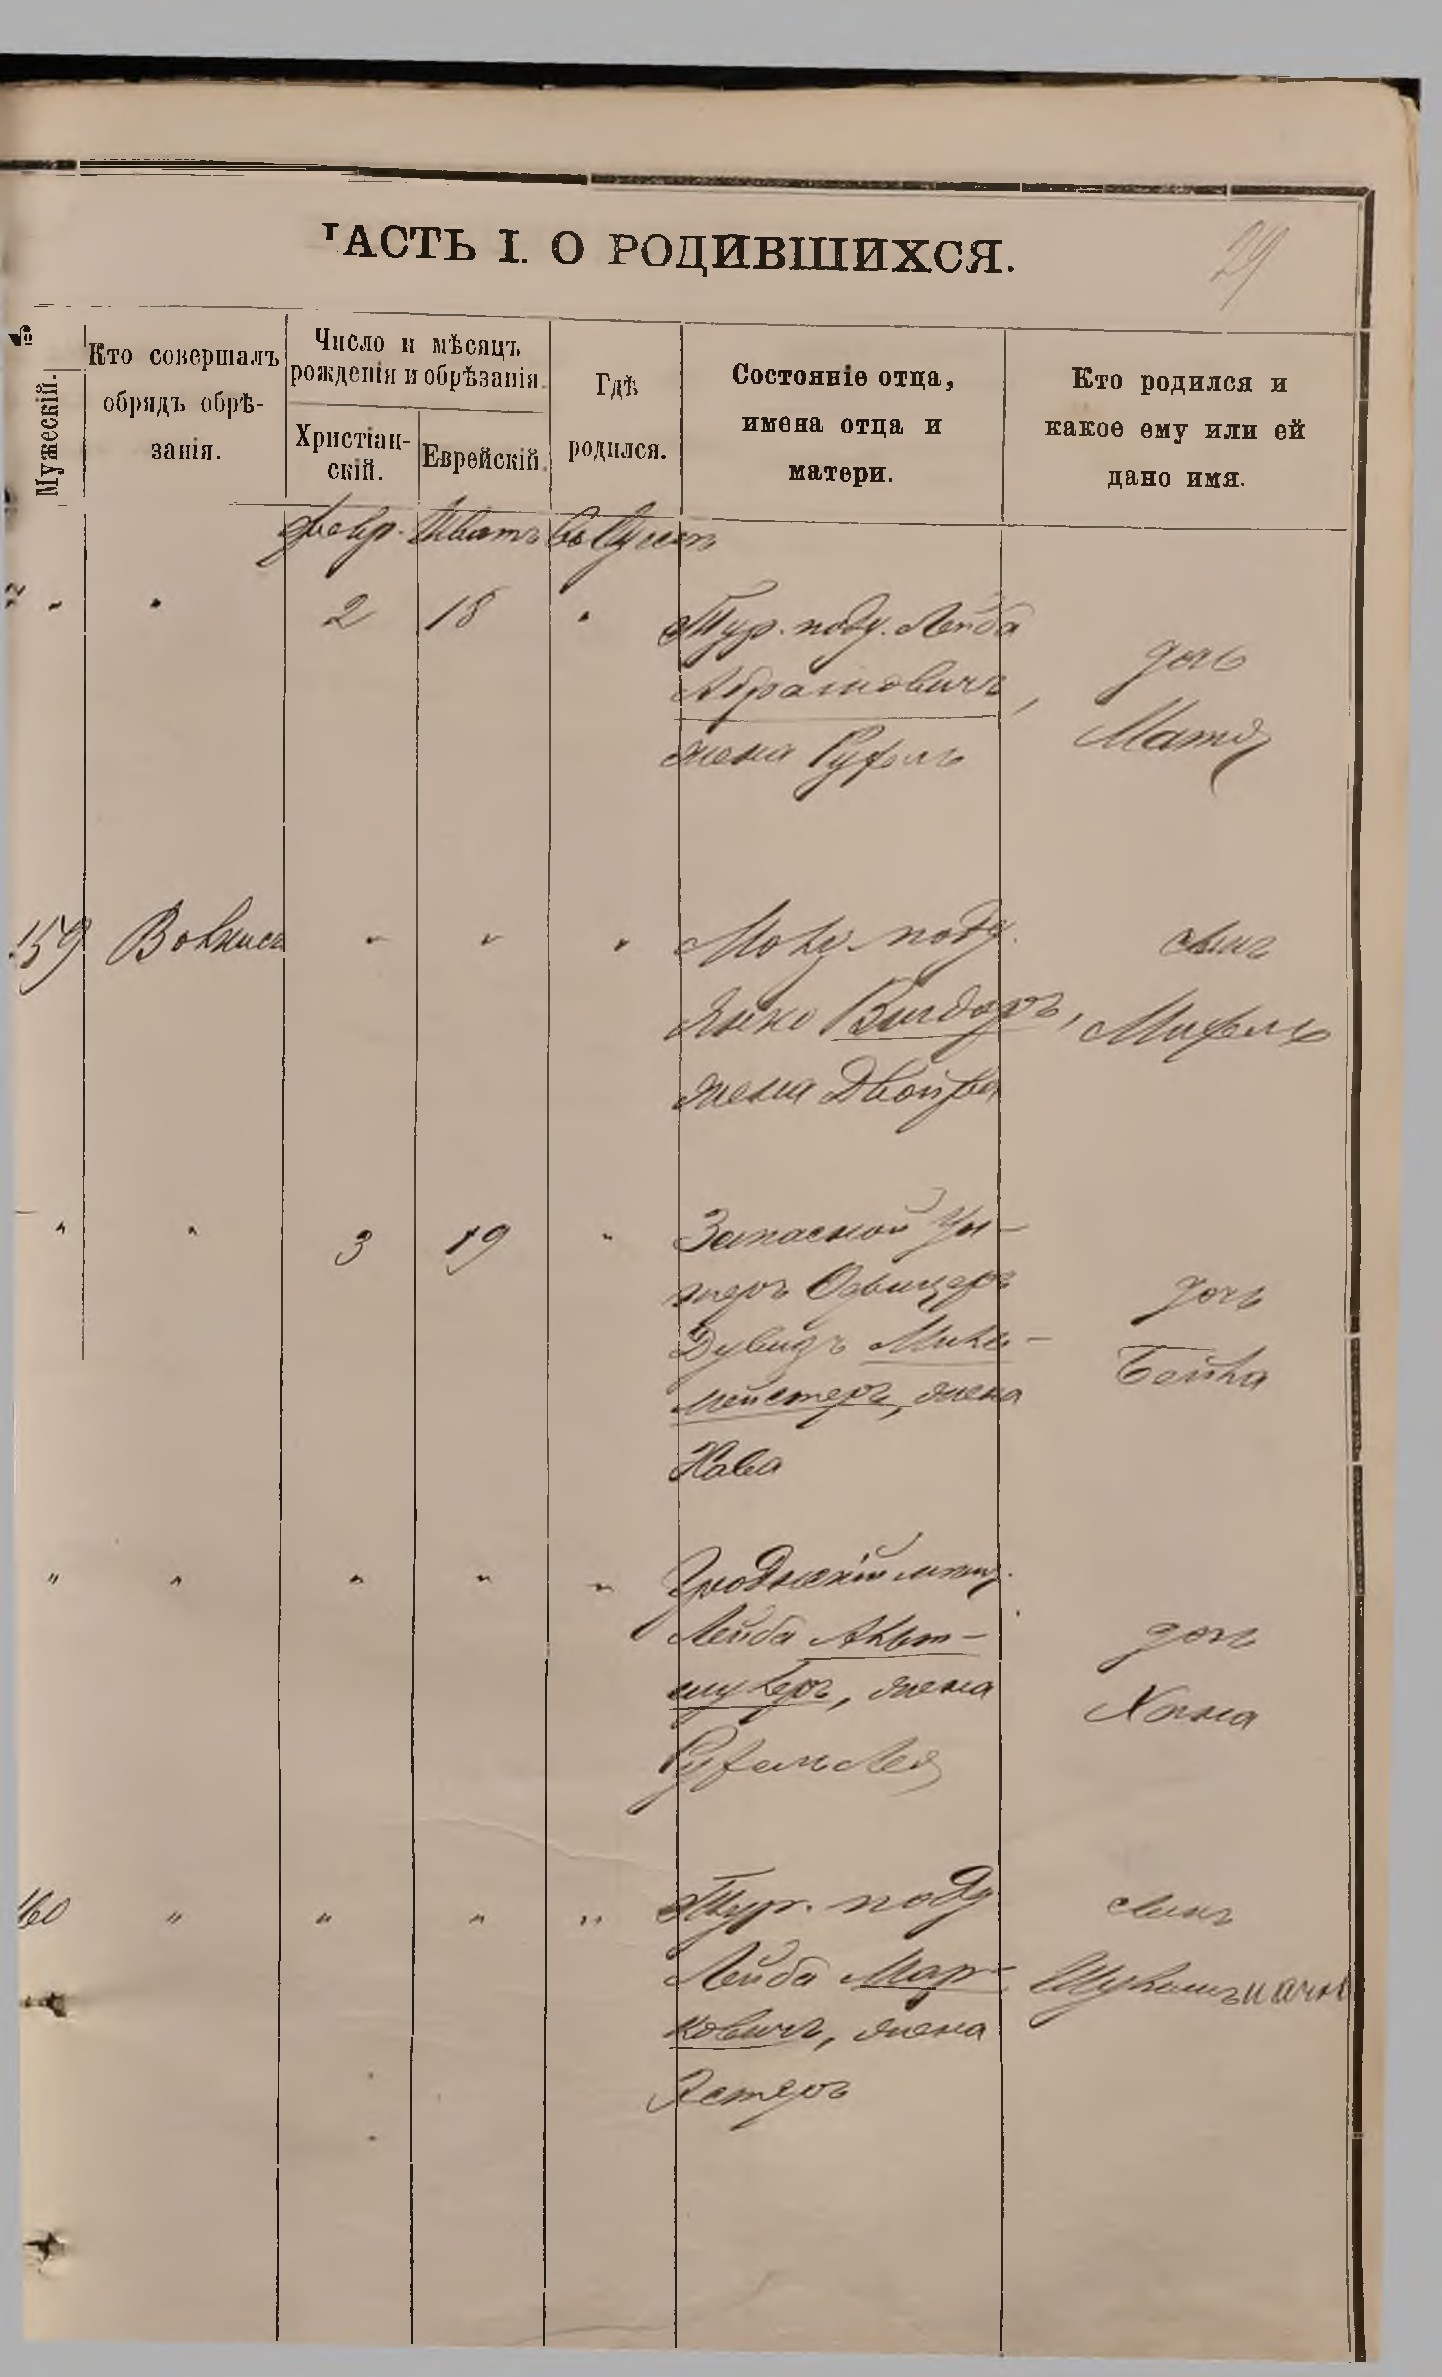 ЧАСТЬ I. О РОДИВШИХСЯ.
29
№
Мужескій.
Кто совершалъ
обрядъ обрѣ-
занія.
Число и мѣсяцъ
рожденія и обрѣзанія.
Христіан-
скій.
Еврейскій.
Гдѣ
родился.
Состояніе отца,
имена отца и
матери.
Кто родился и
какое ему или ей
дано имя.
Февр. Шватъ
" " 2 18 " Тур. подд. Лейба
Абрамовичъ,
жена Рухль
дочь
Матя
159 Вовкисъ " " " Молд. подд.
Янко Вигдоръ,
жена Двойра
сынъ
Михель
" " 3 19 " Запасной Ун-
теръ Офицеръ
Дувидъ Миль-
мейстеръ, жена
Хава
дочь
Бейла
" " " " " Гродненскій мѣщ.
Лейба Альт-
шулеръ, жена
Рухель Лея
дочь
Хана
160 " " " " Тур. подд.
Лейба Мар-
ковичъ, жена
Эстеръ
сынъ